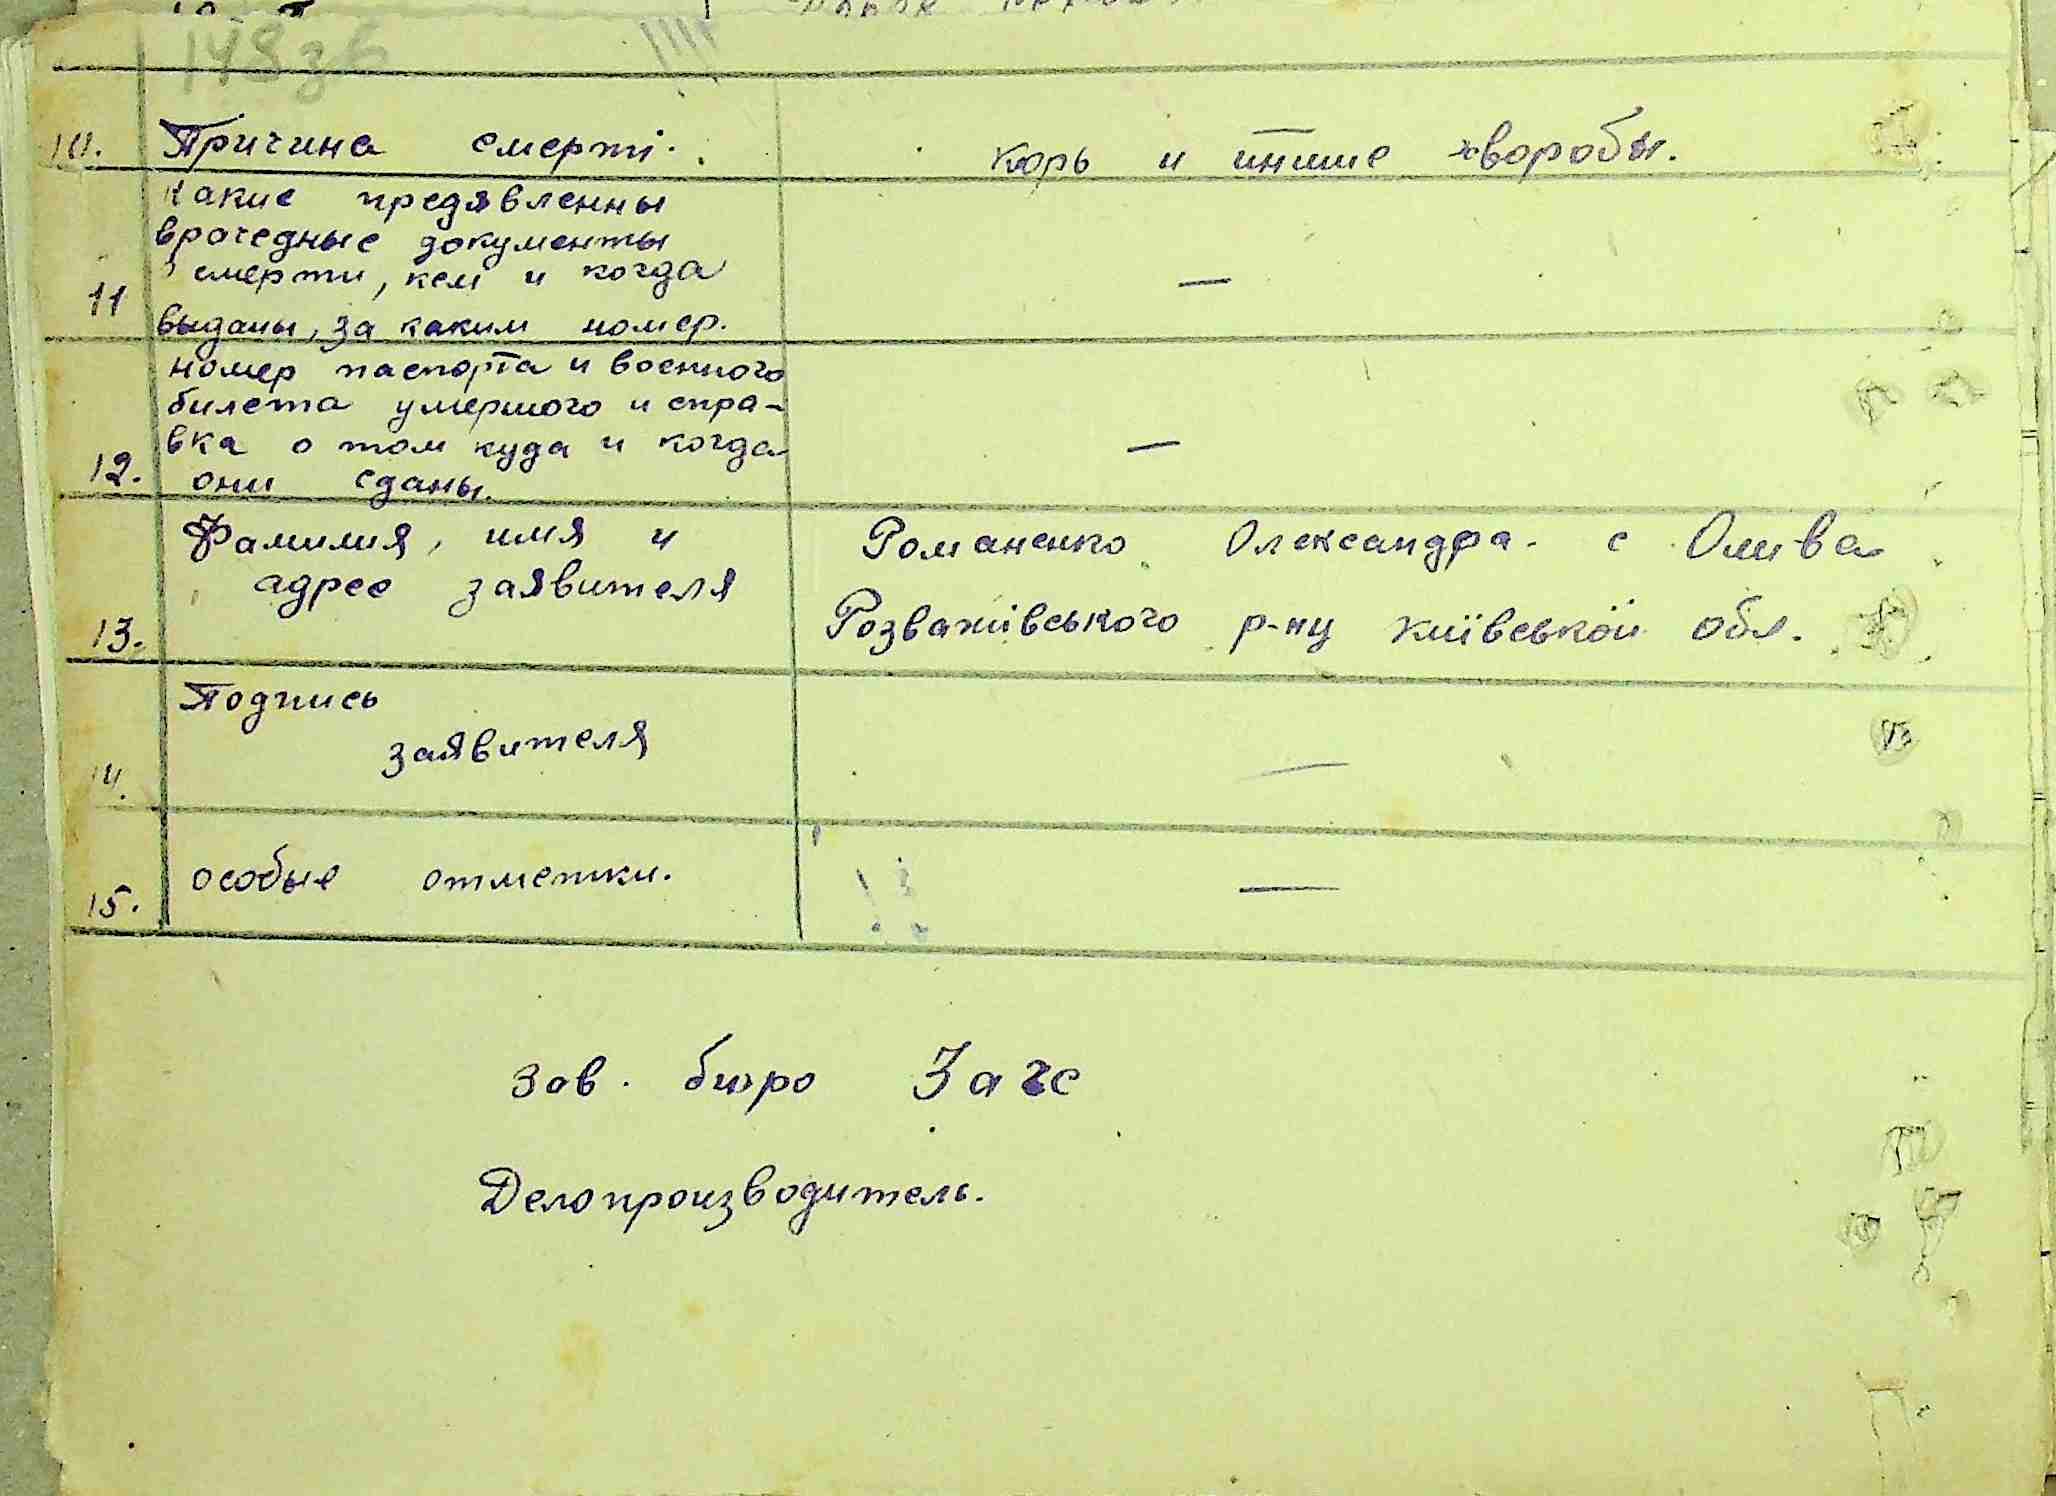 148зв
10. Причина смерті. корь и иньше хворобы.
Какие предявленны
врачедные документы
о смерти, кем и когда
11 выданы, за каким номер. —
номер паспорта и военного
билета умершого и спра-
вка о том куда и когда —
12. они сданы.
Фамилия, имя и Романенко Олександра. с Олива
адрес заявителя Розважівського р-ну київськой обл.
13.
Подпись
заявителя —
14.
особые отметки. —
15.
зав. бюро Загс
Делопроизводитель.